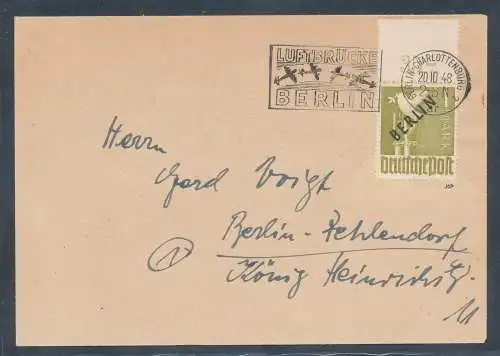 LUFTBRÜCKE
BERLIN
BERLIN-CHARLOTTENBURG 2
20.10.48
BERLIN
MARK
Deutsche Post
Herrn
Gerd Voigt
Berlin-Zehlendorf
König Heinrichstr.
11